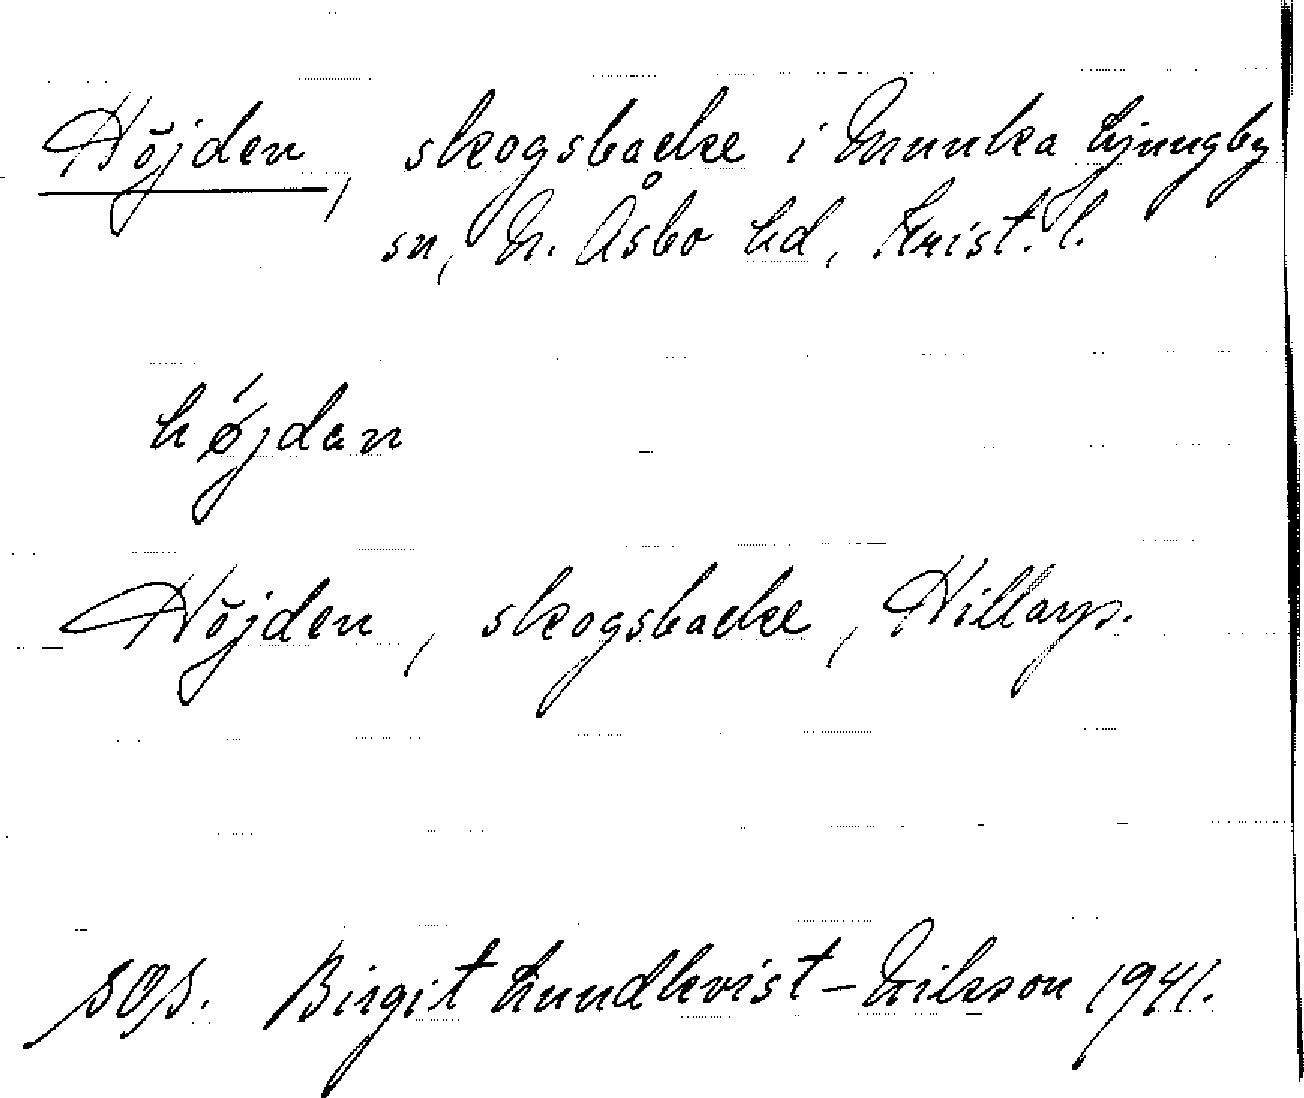 Höjden, skogsbacke i Munka Ljungby
sn, N. Åsbo hd, Krist. l.
højdan
Höjden, skogsbacke, Hillarp.
SOS. Birgit Lundkvist-Nilsson 1941.